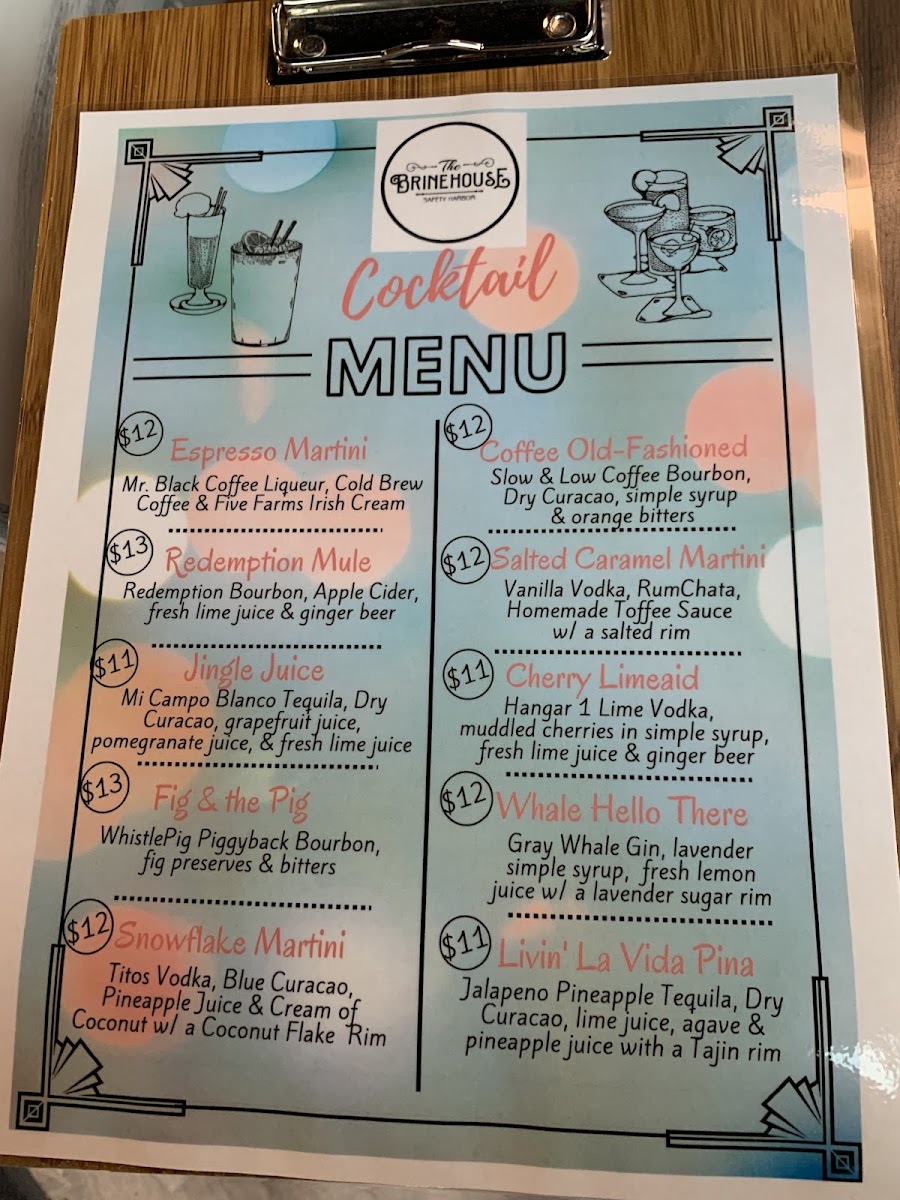 The
BRINEHOUSE
SAFETY HARBOR
Cocktail
MENU
$12
Espresso Martini
Mr. Black Coffee Liqueur, Cold Brew
Coffee & Five Farms Irish Cream
$13
Redemption Mule
Redemption Bourbon, Apple Cider,
fresh lime juice & ginger beer
$11
Jingle Juice
Mi Campo Blanco Tequila, Dry
Curacao, grapefruit juice,
pomegranate juice, & fresh lime juice
$13
Fig & the Pig
WhistlePig Piggyback Bourbon,
fig preserves & bitters
$12
Snowflake Martini
Titos Vodka, Blue Curacao,
Pineapple Juice & Cream of
Coconut w/ a Coconut Flake Rim
$12
Coffee Old-Fashioned
Slow & Low Coffee Bourbon,
Dry Curacao, simple syrup
& orange bitters
$12
Salted Caramel Martini
Vanilla Vodka, RumChata,
Homemade Toffee Sauce
w/ a salted rim
$11
Cherry Limeaid
Hangar 1 Lime Vodka,
muddled cherries in simple syrup,
fresh lime juice & ginger beer
$12
Whale Hello There
Gray Whale Gin, lavender
simple syrup, fresh lemon
juice w/ a lavender sugar rim
$11
Livin' La Vida Pina
Jalapeno Pineapple Tequila, Dry
Curacao, lime juice, agave &
pineapple juice with a Tajin rim